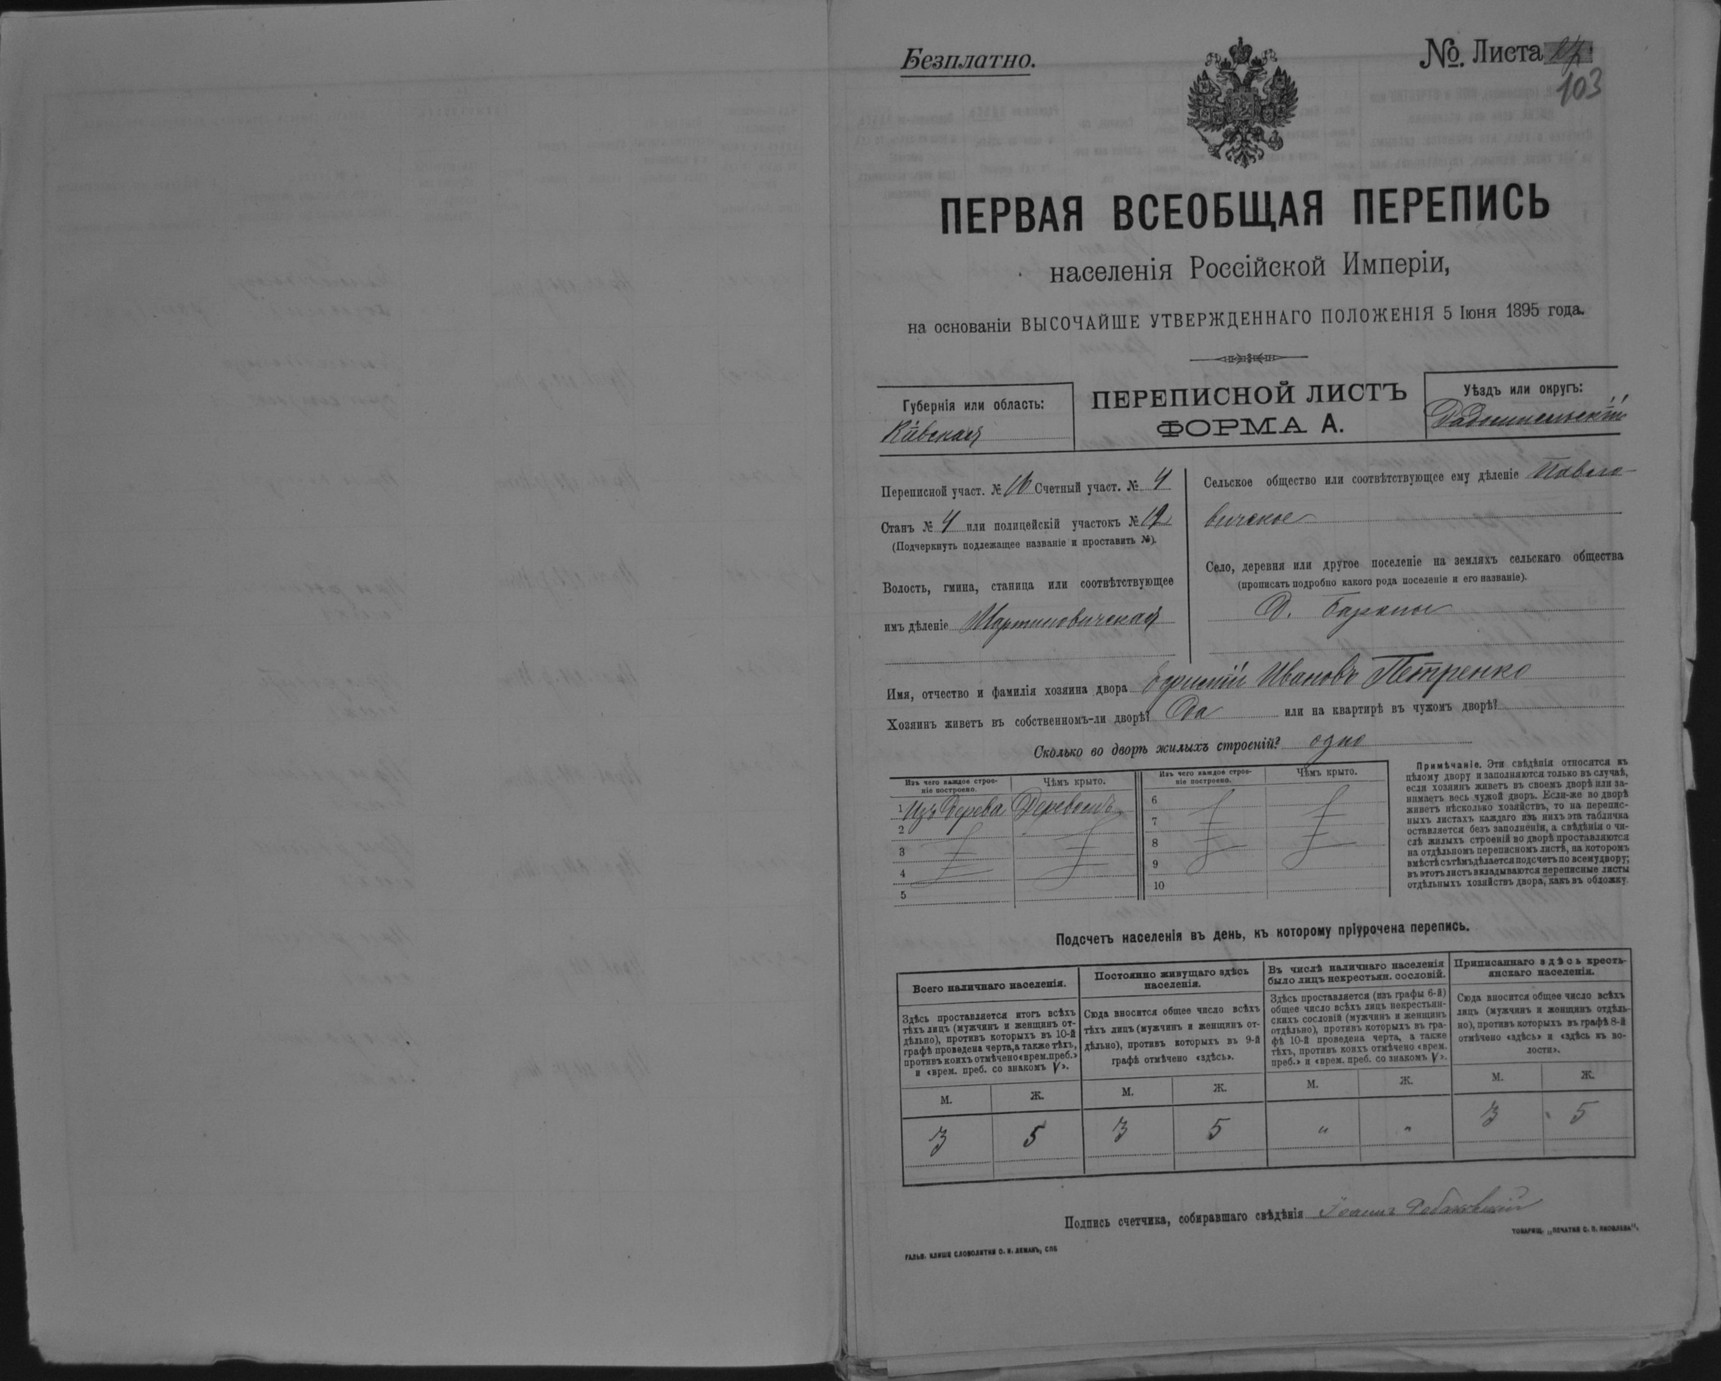 Безплатно.
№ Листа
103
ПЕРВАЯ ВСЕОБЩАЯ ПЕРЕПИСЬ
населенія Россійской Имперіи,
на основаніи ВЫСОЧАЙШЕ УТВЕРЖДЕННАГО ПОЛОЖЕНІЯ 5 Іюня 1895 года.
Губернія или область:
Кіевская
ПЕРЕПИСНОЙ ЛИСТЪ
ФОРМА А.
Уѣздъ или округъ:
Радомысльскій
Переписной участ. № Счетный участ. № 4
Станъ № 4 или полицейскій участокъ № 12
(Подчеркнуть подлежащее названіе и проставить №).
Волость, гмина, станица или соотвѣтствующее
имъ дѣленіе Мартиновичская
Сельское общество или соотвѣтствующее ему дѣленіе Павло-
вичское
Село, деревня или другое поселеніе на земляхъ сельскаго общества
(прописать подробно какого рода поселеніе и его названіе).
Д.
Имя, отчество и фамилія хозяина двора Ивановъ Петренко
Хозяинъ живетъ въ собственномъ-ли дворѣ? Да или на квартирѣ въ чужомъ дворѣ?
Сколько во дворѣ жилыхъ строеній? одно
Изъ чего каждое строе-
ніе построено.
Чѣмъ крыто.
1 Изъ дерева Деревомъ
2
3
4
5
Изъ чего каждое строе-
ніе построено.
Чѣмъ крыто.
6
7
8
9
10
Примѣчаніе. Эти свѣдѣнія относятся къ
цѣлому двору и заполняются только въ случаѣ,
если хозяинъ живетъ въ своемъ дворѣ или за-
нимаетъ весь чужой дворъ. Если-же во дворѣ
живетъ нѣсколько хозяйствъ, то на перепис-
ныхъ листахъ каждаго изъ нихъ эта табличка
оставляется безъ заполненія, а свѣдѣнія о чи-
слѣ жилыхъ строеній во дворѣ проставляются
на отдѣльномъ переписномъ листѣ, на которомъ
вмѣстѣ съ тѣмъ дѣлается подсчетъ по всему двору;
въ этотъ листъ вкладываются переписные листы
отдѣльныхъ хозяйствъ двора, какъ въ обложку.
Подсчетъ населенія въ день, къ которому пріурочена перепись.
Всего наличнаго населенія.
Здѣсь проставляется итогъ всѣхъ
тѣхъ лицъ (мужчинъ и женщинъ от-
дѣльно), противъ которыхъ въ 10-й
графѣ проведена черта, а также тѣхъ,
противъ коихъ отмѣчено «врем. преб.»
и «врем. преб. со знакомъ V».
М. Ж.
3 5
Постоянно живущаго здѣсь
населенія.
Сюда вносится общее число всѣхъ
тѣхъ лицъ (мужчинъ и женщинъ от-
дѣльно), противъ которыхъ въ 9-й
графѣ отмѣчено «здѣсь».
М. Ж.
3 5
Въ числѣ наличнаго населенія
было лицъ некрестьян. сословій.
Здѣсь проставляется (изъ графы 6-й)
общее число всѣхъ лицъ некрестьян-
скихъ сословій (мужчинъ и женщинъ
отдѣльно), противъ которыхъ въ гра-
фѣ 10-й проведена черта, а также
тѣхъ, противъ коихъ отмѣчено «врем.
преб.» и «врем. преб. со знакомъ V».
М. Ж.
" "
Приписаннаго здѣсь кресть-
янскаго населенія.
Сюда вносится общее число всѣхъ
лицъ (мужчинъ и женщинъ отдѣль-
но), противъ которыхъ въ графѣ 8-й
отмѣчено «здѣсь» и «здѣсь въ во-
лости».
М. Ж.
3 5
Подпись счетчика, собиравшаго свѣдѣнія
ГАЛЬВ. КЛИШЕ СЛОВОЛИТНИ О. И. ЛЕМАНЪ, СПБ
ТОВАРИЩ. „ПЕЧАТНЯ С. П. ЯКОВЛЕВА".